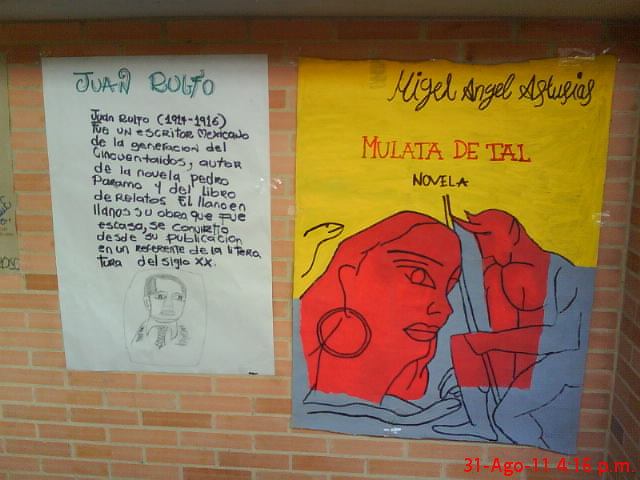 JUAN RULFO
Juan Rulfo (1917-1916)
Fue un escritor Mexicano
de la generacion del
Cincuentaidos, autor
de la novela pedro
Paramo y del libro
de relatos El llano en
llanos su obra que fue
escasa, se convirtio
desde su publicacion
en un referente de la litera
tura del siglo XX.
Migel Angel Asturias
MULATA DE TAL
NOVELA
31-Ago-11 4:16 p.m.